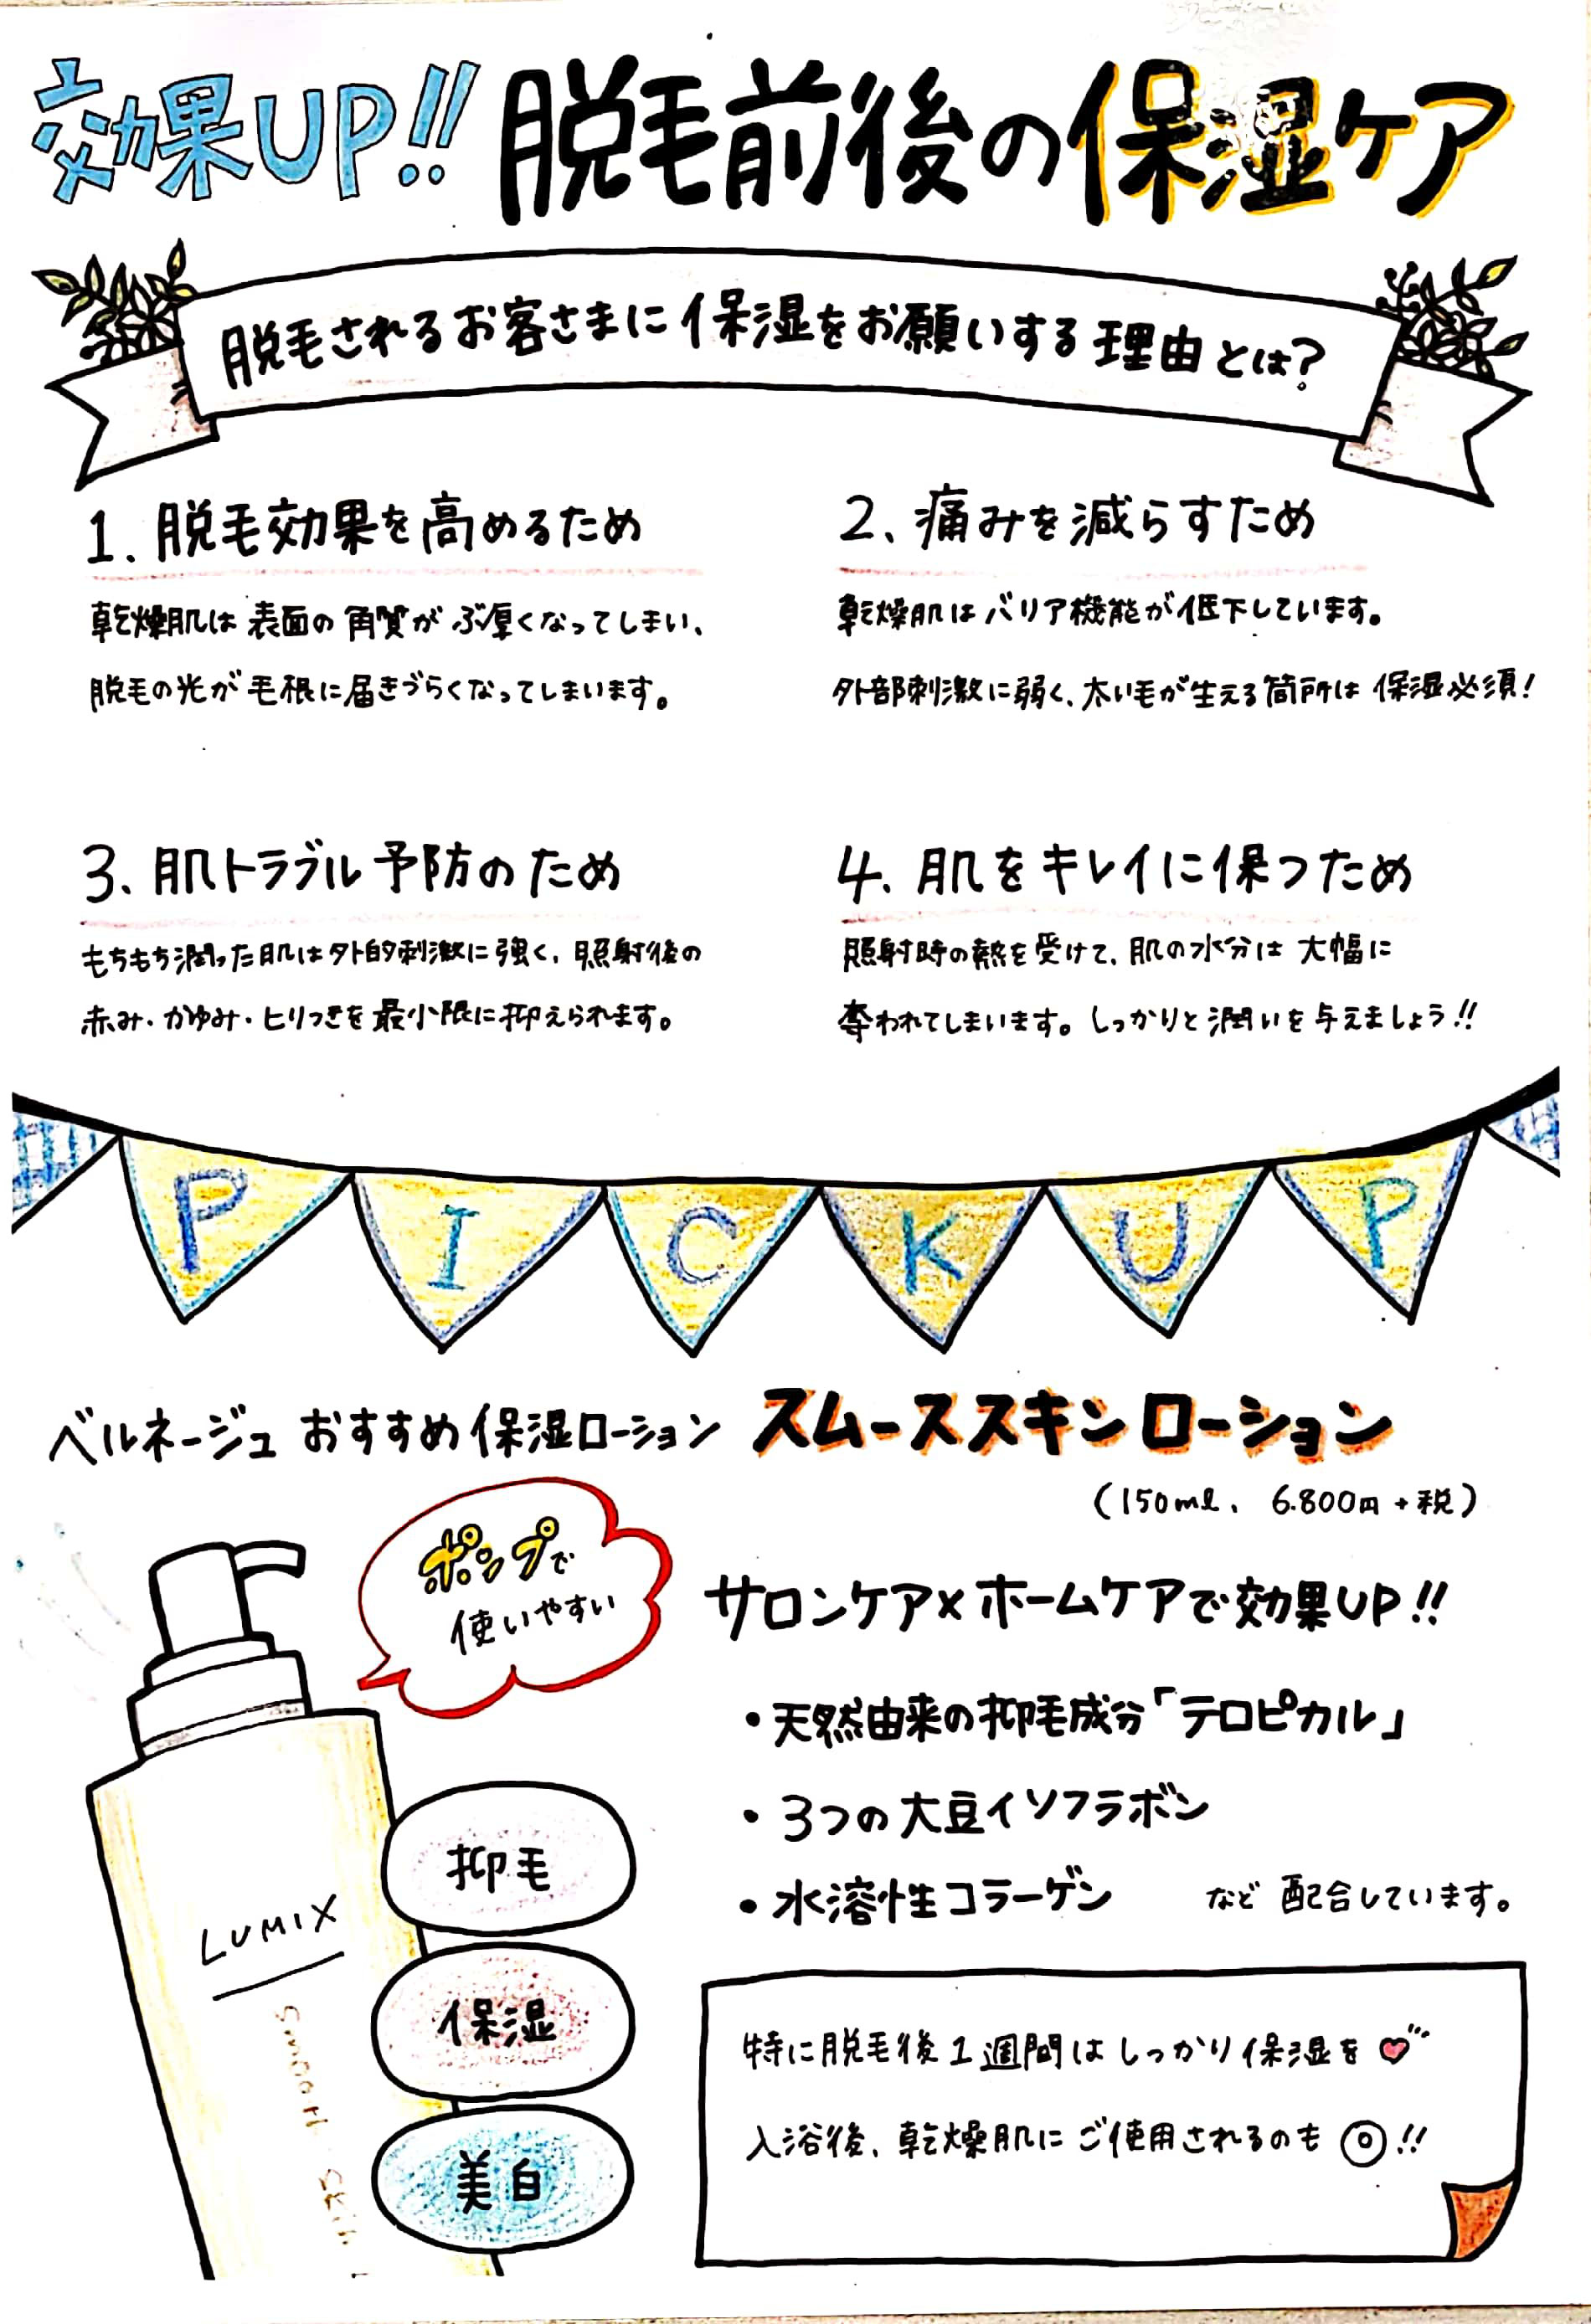 効果UP!! 脱毛前後の保湿ケア
脱毛されるお客さまに保湿をお願いする理由とは?
1. 脱毛効果を高めるため
乾燥肌は表面の角質がぶ厚くなってしまい、
脱毛の光が毛根に届きづらくなってしまいます。
2、痛みを減らすため
乾燥肌はバリア機能が低下しています。
外部刺激に弱く、太い毛が生える箇所は保湿必須!
3、肌トラブル予防のため
もちもち潤った肌は外的刺激に強く、照射後の
赤み・かゆみ・ヒリつきを最小限に抑えられます。
4. 肌をキレイに保つため
照射時の熱を受けて、肌の水分は大幅に
奪われてしまいます。しっかりと潤いを与えましょう!!
PICKUP
ベルネージュおすすめ保湿ローション スムーススキンローション
(150ml、6.800円+税)
ポンプで
使いやすい
サロンケア×ホームケアで効果UP!!
・天然由来の抑毛成分「テロピカル」
・3つの大豆イソフラボン
・水溶性コラーゲン など配合しています。
抑毛
保湿
美白
LUMIX
Smooth Skin
特に脱毛後1週間はしっかり保湿を
入浴後、乾燥肌にご使用されるのも◎!!